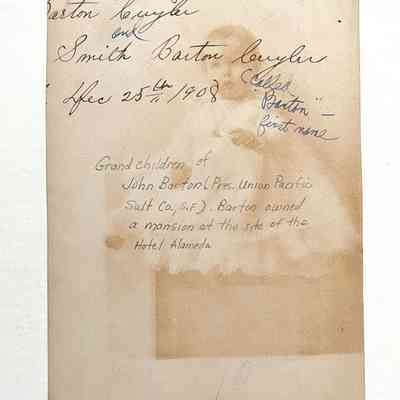 Barton Cuyler
and
Smith Barton Cuyler
(Called
"Barton" —
first name
Dec 25th 1908
Grand children of
John Barton (Pres. Union Pacific
Salt Co., S.F.). Barton owned
a mansion at the site of the
Hotel Alameda